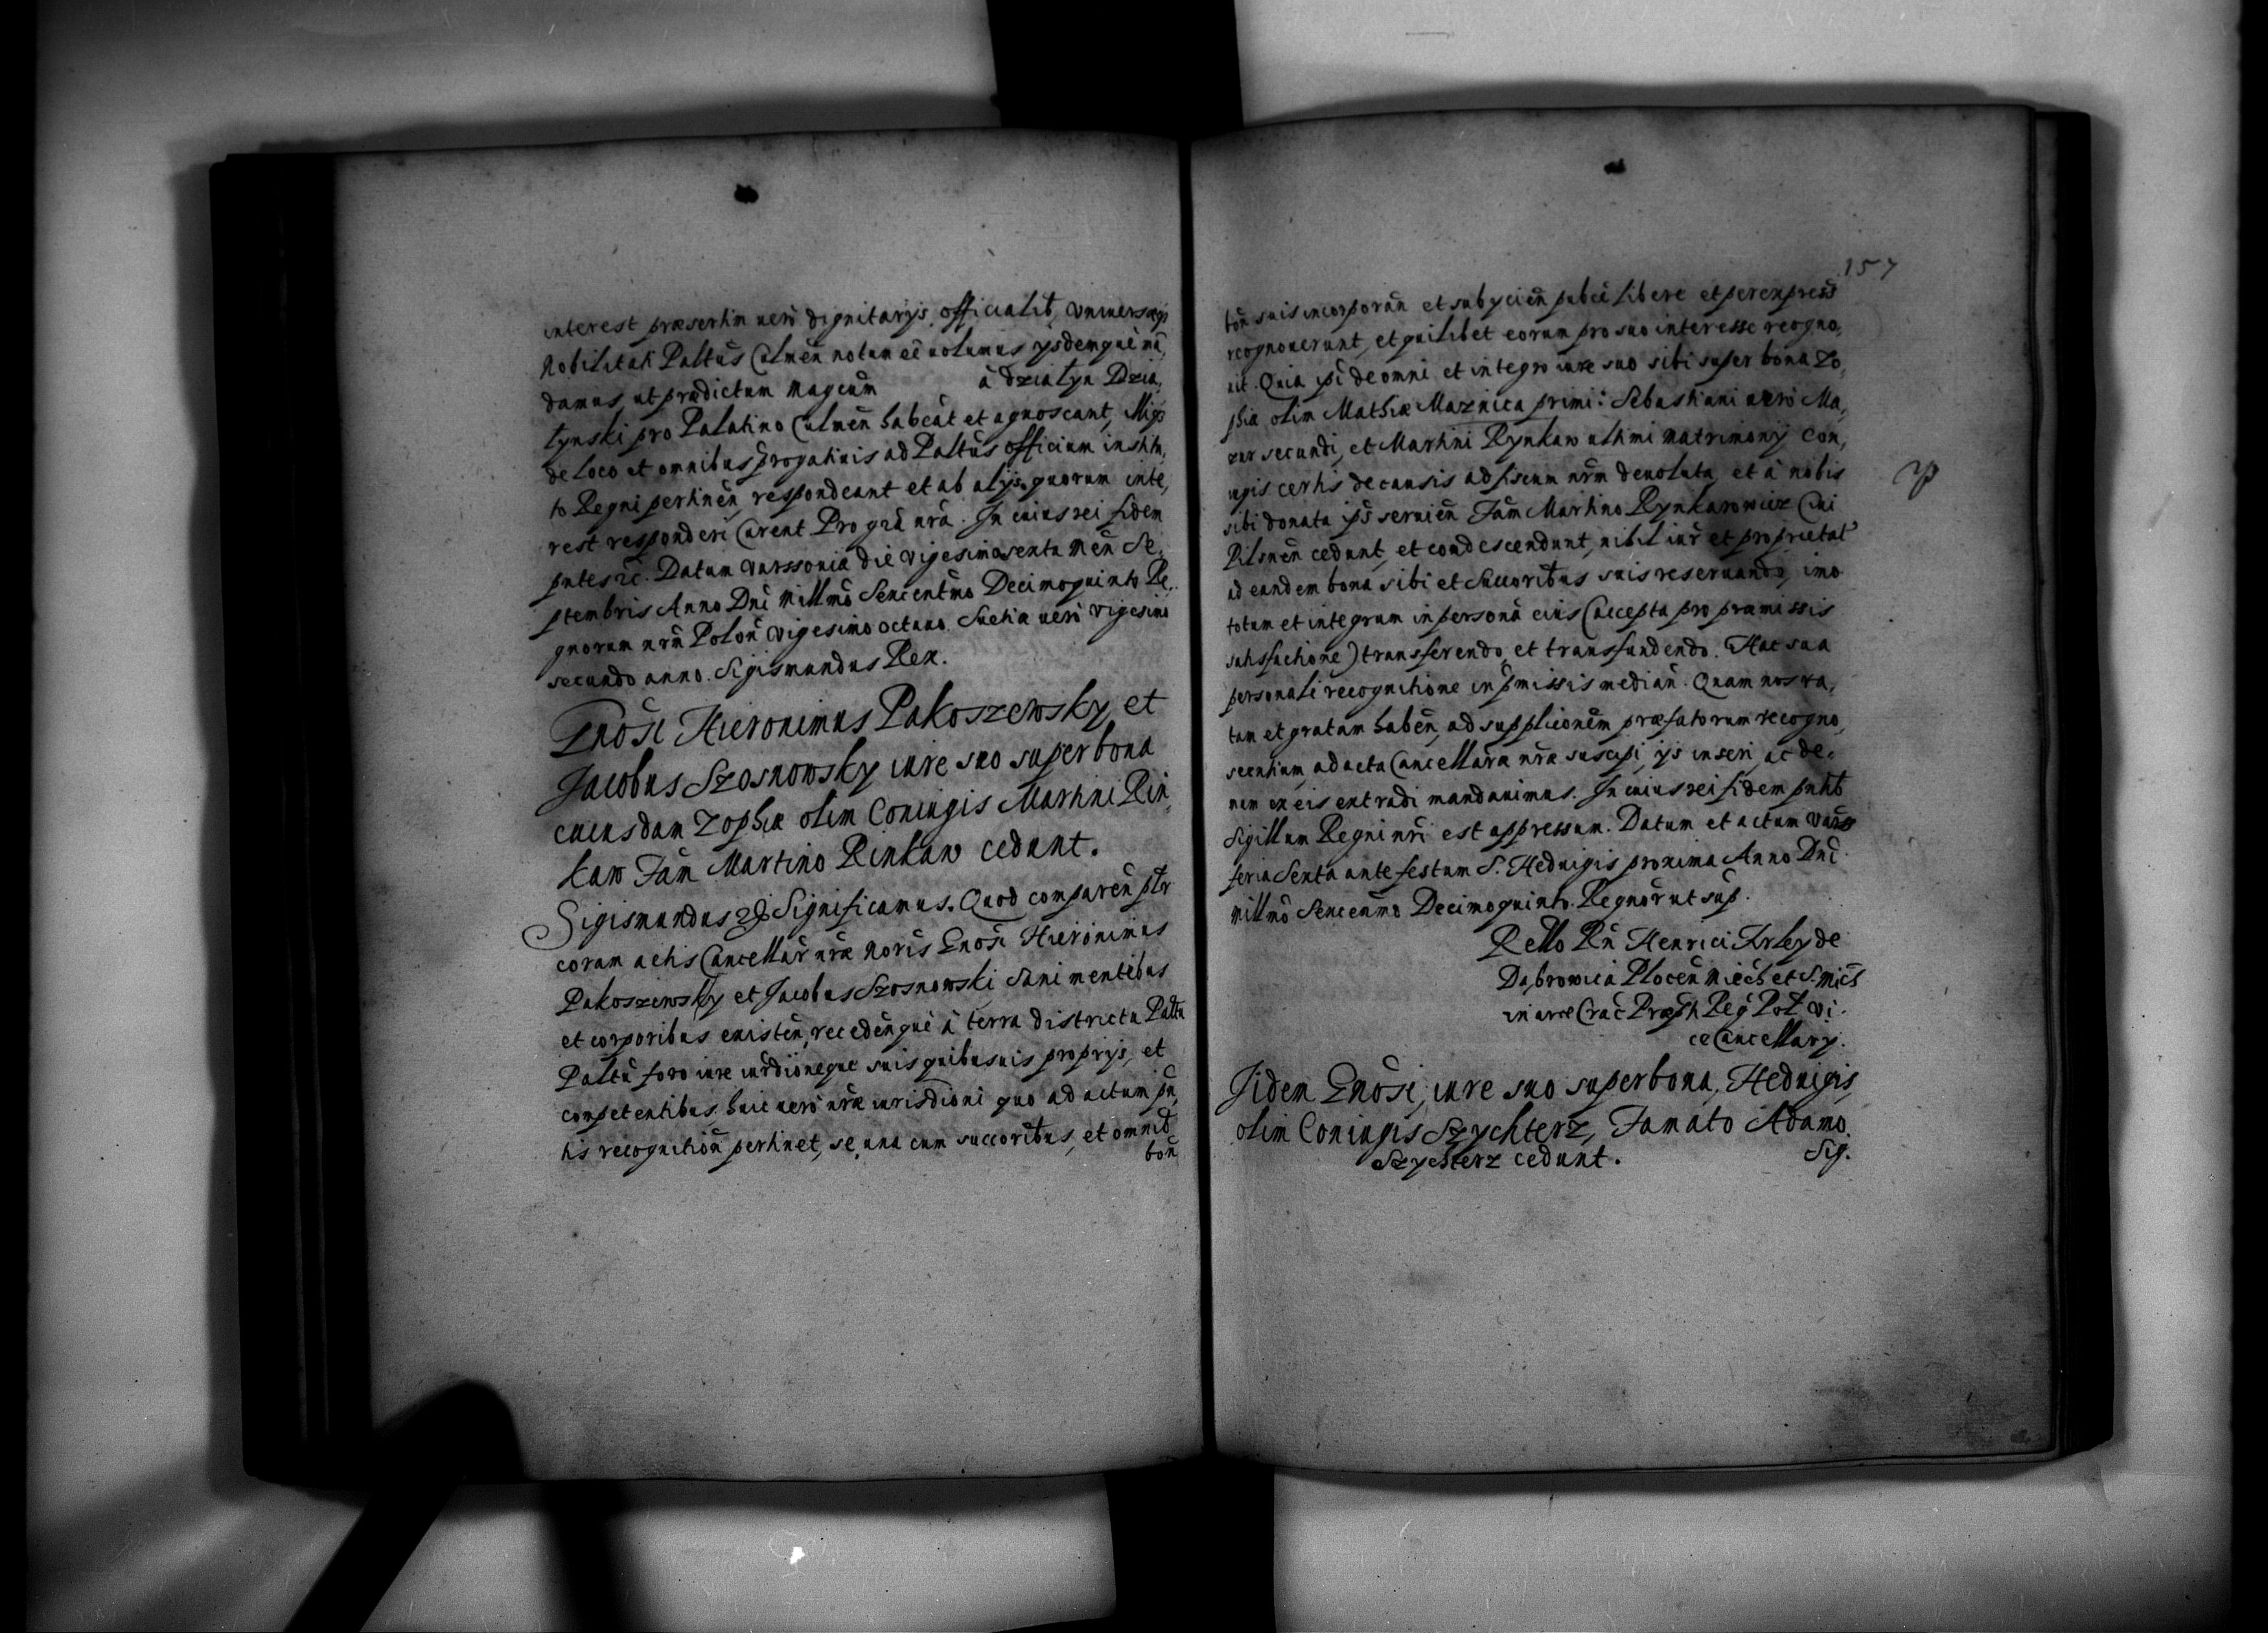 interest præsertim uerò dignitarijs, officialib, vniuersæqȝ
Nobilitati Paltūs Culmēn notum eē uolumus ijsdemquè mā,
damus ut prædictum Magcum à Działyn Dzia,
łynski pro Palatino Culmēn habeāt et agnoscant, Illiqȝ
de loco et omnibus prǒgatiuis ad Paltūs officium institu,
to Regni pertinēn, respondeant et ab alijs quorum inte,
rest responderi Curent Pro grā nrā. In cuius rei fidem
pntes ꝛc. Datum Varssouiæ die vigesimasexta Mēn Se,
ptembris Anno Dnī Millmō Sexcentmō Decimoquinto Re,
gnorum nrm̄ Polon̄ vigesimo octauo. Sueticæ uerò vigesimo
secundo anno. Sigismundus Rex.
Gnōsi Hieronimus Pakoszewsky et
Jacobus Szosnowsky iure suo super bona
cuiusdam Zophiæ olim Coniugis Martini Rin,
kaw Fām Martino Rinkaw cedunt.
Sigismundus ꝛc Significamus. Quod comparēn pltr
coram actis Cancellār nræ Noris Gnōsi Hieronimus
Pakoszewsky et Jacobus Szosnowski Sani mentibus
et corporibus existēn, recedēnquè à terra districtu Paltu
Paltū foro iure iurdīoneque suis quibusuis proprijs, et
competentibus, huic uerò nræ iurisdīoni quo ad actum pn̄,
tis recognitiōn pertinet, se, una cum succoribus, et omnib
bōn
157
bōn suis incorporān et subijciēn pubcē libere et per expressū
recognouerunt, et quilibet eorum pro suo interesse recogno,
uit. Quia ipsī de omni et integro iure suo sibi super bona Zo,
phiæ olim Mathiæ Maznica primi: Sebastiani uerò Ma,
zur secundi, et Martini Rynkaw ultimi matrimonij Con,
iugis certis de causis ad fiscum nrm̄ deuoluta et à nobis
sibi donata ipsīs seruiēn Fām Martino Rynkarowicz Ciui
Pilsnēn cedunt, et condescendunt, nihil iur̄ et proprietat
ad eandem bona sibi et succoribus suis reseruando, imo
totum et integrum in personā eius (accepta pro præmissis
satisfactione) transferendo, et transfundendo. Hac sua
personali recognitione in pmissis mediān. Quam nos ra,
tam et gratam habēn, ad supplicionēm præfatorum recogno,
scentium, ad acta Cancellariæ nræ suscipi, ijs inseri, ac de,
num ex eis extradi mandauimus. In cuius rei fidem pntib
Sigillum Regni nrī est appressum. Datum et actum Varss
feria Sexta ante festum S. Heduigis proxima Anno Dnī
Millmō Sexcenmo Decimoquinto. Regnōr ut sup.
Rello Rn̄ Henrici Firley de
Dąbrowica Plocēn Miēch et S. Mich
in arce Crāc Præpti Reg Pol Vi,
ceCancellarij.
Jidem Gnōsi, iure suo super bona, Heduigis,
olim Coniugis Szychterz, Famato Adamo
Szychterz cedunt.
Sig.